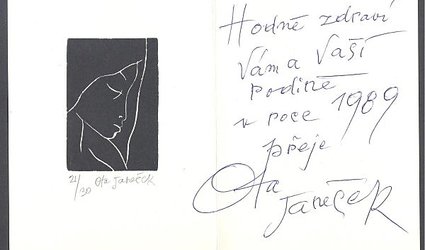 21/30 Ota Janeček
Hodně zdraví
Vám a Vaší
rodině
v roce 1989
přeje
Ota
Janeček